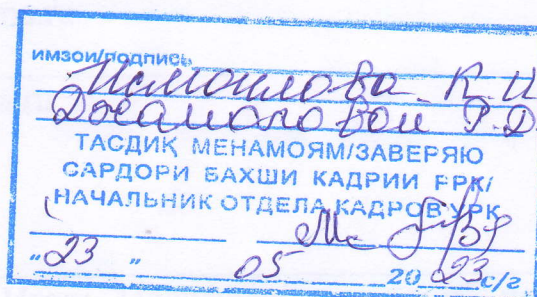 имзои/подпись
Исмоилова К. И
Джамоловой Р. Д.
ТАСДИҚ МЕНАМОЯМ/ЗАВЕРЯЮ
САРДОРИ БАХШИ КАДРИИ РРК/
НАЧАЛЬНИК ОТДЕЛА КАДРОВ УРК
"23" 05 2023 с/г